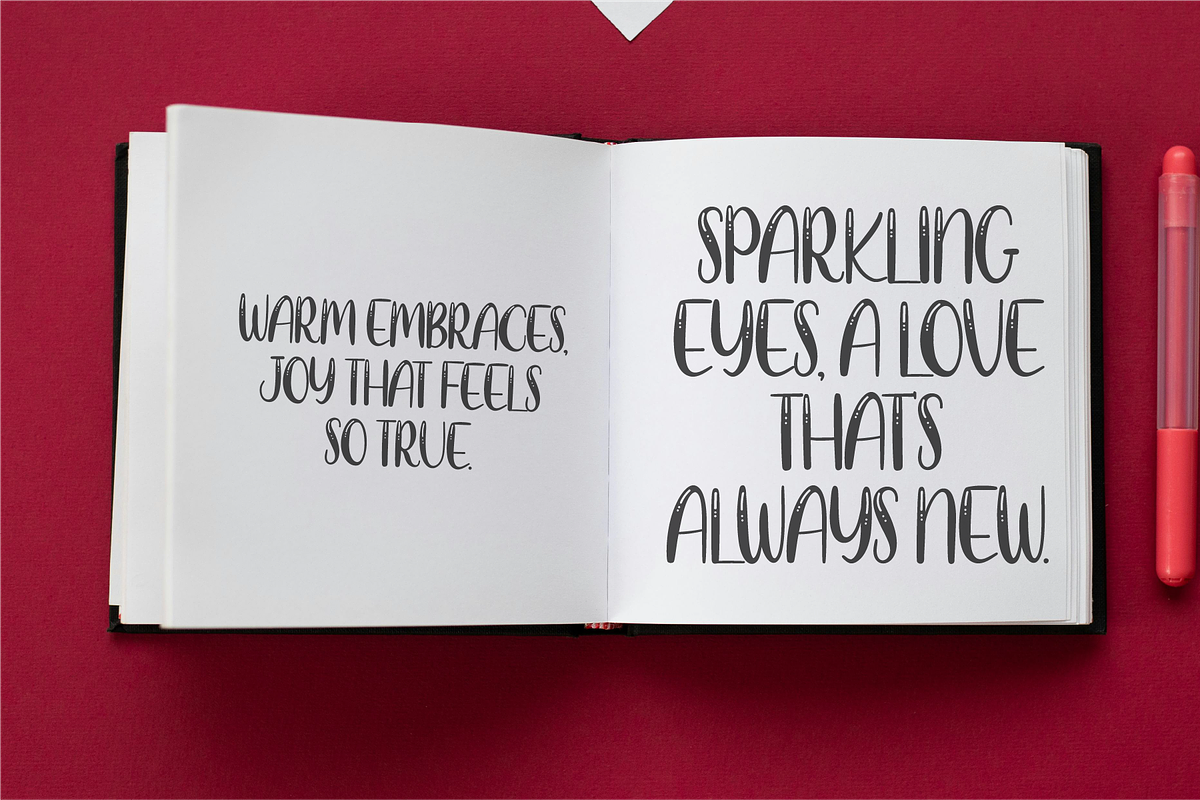 WARM EMBRACES,
JOY THAT FEELS
SO TRUE.
SPARKLING
EYES, A LOVE
THAT'S
ALWAYS NEW.